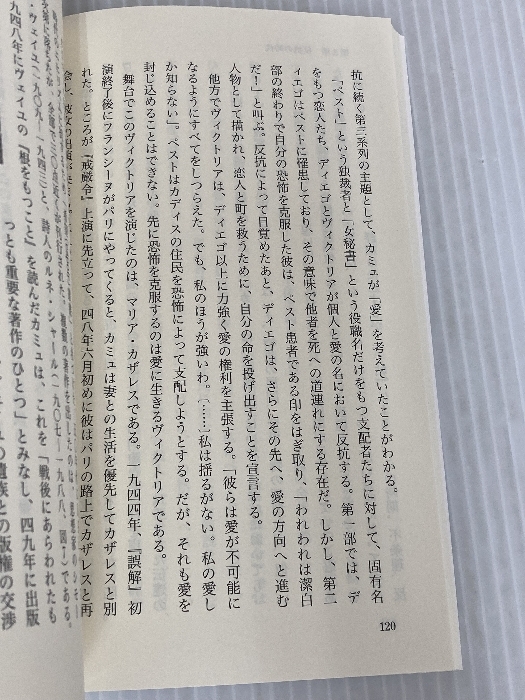 抗に続く第三系列の主題として、カミュが「愛」を考えていたことがわかる。
「ペスト」という独裁者と「女秘書」という役職名だけをもつ支配者たちに対して、固有名
をもつ恋人たち、ディエゴとヴィクトリアが個人と愛の名において反抗する。第一部では、デ
ィエゴはペストに罹患しており、その意味で他者を死への道連れにする存在だ。しかし、第二
部の終わりで自分の恐怖を克服した彼は、ペスト患者である印をはぎ取り、「われわれは潔白
だ!」と叫ぶ。反抗によって目覚めたあと、ディエゴは、さらにその先へ、愛の方向へと進む
人物として描かれ、恋人と町を救うために、自分の命を投げ出すことを宣言する。
他方でヴィクトリアは、ディエゴ以上に力強く愛の権利を主張する。「彼らは愛が不可能に
なるようにすべてをしつらえた。でも、私のほうが強いわ。〔……〕私は揺るがない。私の愛し
か知らない」。ペストはカディスの住民を恐怖によって支配しようとする。だが、それも愛を
封じ込めることはできない。先に恐怖を克服するのは愛に生きるヴィクトリアである。
舞台でこのヴィクトリアを演じたのは、マリア・カザレスである。一九四四年、『誤解』初
演終了後にフランシーヌがパリにやってくると、カミュは妻との生活を優先してカザレスと別
れた。ところが『戒厳令』上演に先立って、四八年六月初めに彼はパリの路上でカザレスと再
会し、
120
ヴェイユ(一九〇九―一九四三)と、詩人のルネ・シャール(一九〇七―一九八八、図7)である。
九四八年にヴェイユの『根をもつこと』を読んだカミュは、これを「戦後にあらわれたも
っとも重要な著作のひとつ」とみなし、四九年に出版
遺族との版権の交渉